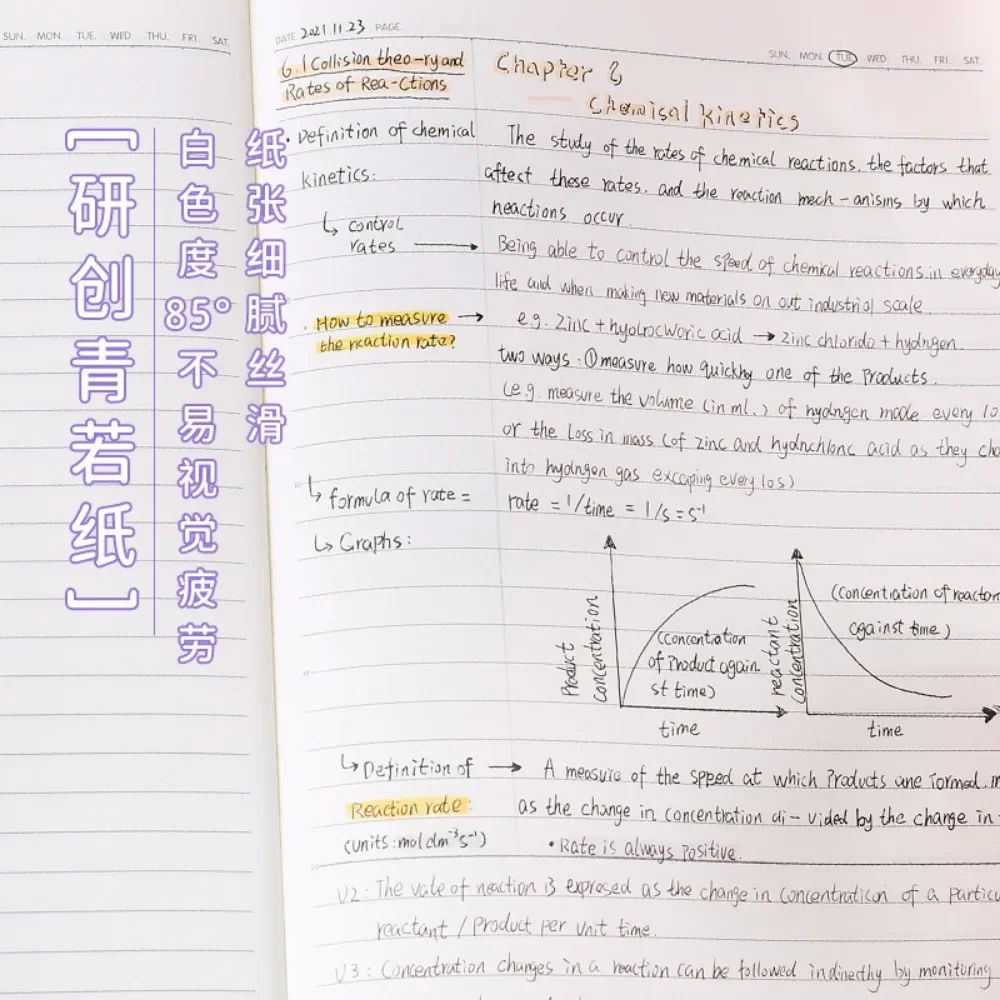 SUN. MON. TUE. WED. THU. FRI. SAT.
DATE 2021.11.23 PAGE.
SUN. MON. TUE. WED. THU. FRI. SAT.
[研创青若纸]
白色度85°不易视觉疲劳
纸张细腻丝滑
6.1 Collision theo-ry and
Rates of Rea-Ctions
Chapter
Chemisal kinetics
• Definition of chemical
kinetics:
The study of the rates of chemical reactions. the factors that
affect these rates. and the reaction mech-anisms by which
reactions occur.
↳ control
rates →
Being able to control the speed of chemical reactions in everyday
life and when making new materials on out industrial scale
. How to measure →
the reaction rate?
e.g. Zinc + hydrocworic acid → zinc chlorido + hydrgen.
two ways: ① measure how quickhy one of the Products.
(e.g. measure the volume (in ml.) of hydrgen made every 10
or the Loss in mass (of zinc and hydrchlonc acid as they cha
into hydrgen gas excaping every 10s)
↳ formula of rate =
rate = 1/time = 1/s = s⁻¹
↳ Graphs:
Product
concentration
(concentration
of Product again
st time)
time
reactant
concentration
(concentration of reactan
against time)
time
↳ Definition of →
Reaction rate:
(units: mol dm⁻³ s⁻¹)
A measure of the speed at which Products are formed. m
as the change in concentration di-vided by the change in
• Rate is always positive.
V2: The vate of reaction is expresed as the change in concentration of a particu
reactant / Product per unit time.
V3: Concentration changes in a reaction can be followed indirecthy by monitoring